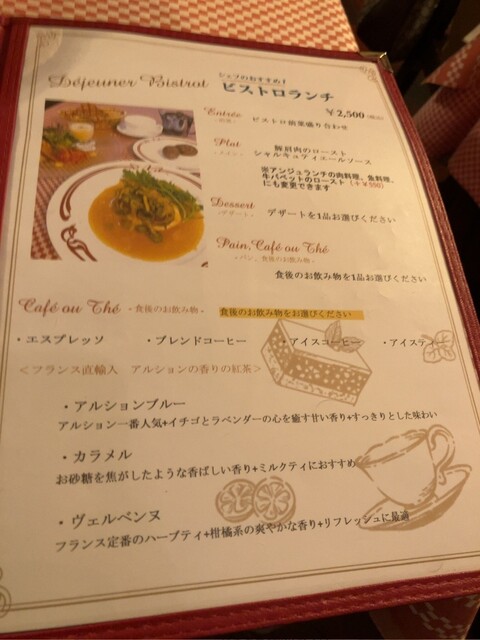 Déjeuner Bistrot
シェフのおすすめ！
ビストロランチ
¥2,500(税込)
Entrée
- 前菜 -
ビストロ前菜盛り合わせ
Plat
- メイン -
豚肩肉のロースト
シャルキュティエールソース
※アンジュランチの肉料理、魚料理、
牛バベットのロースト（＋￥550）
にも変更できます
Dessert
- デザート -
デザートを1品お選びください
Pain,Café ou Thé
- パン、食後のお飲み物 -
食後のお飲み物を1品お選びください
Café ou Thé - 食後のお飲み物 - 食後のお飲み物をお選びください
・エスプレッソ ・ブレンドコーヒー ・アイスコーヒー ・アイスティー
＜フランス直輸入 アルションの香りの紅茶＞
・アルションブルー
アルション一番人気+イチゴとラベンダーの心を癒す甘い香り+すっきりとした味わい
・カラメル
お砂糖を焦がしたような香ばしい香り+ミルクティにおすすめ
・ヴェルベンヌ
フランス定番のハーブティ+柑橘系の爽やかな香り+リフレッシュに最適